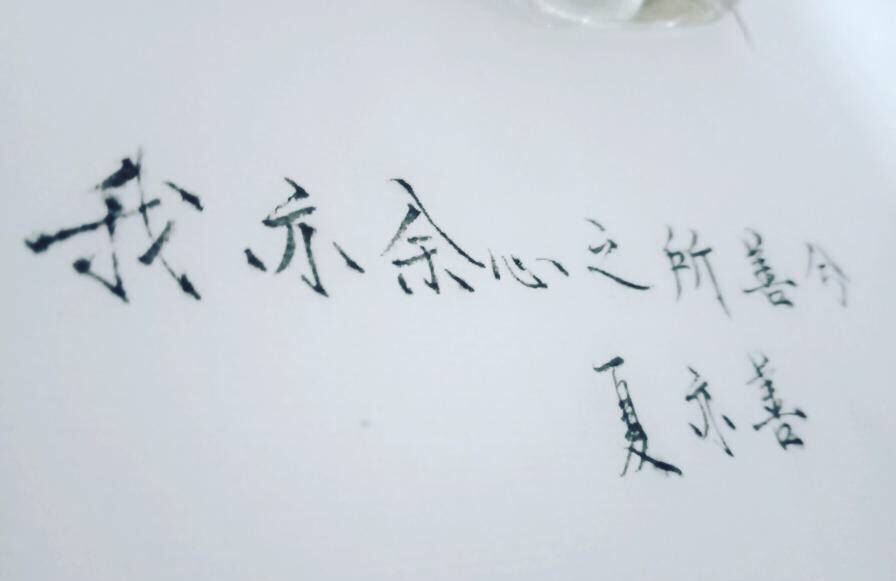 我亦余心之所善兮
夏亦善